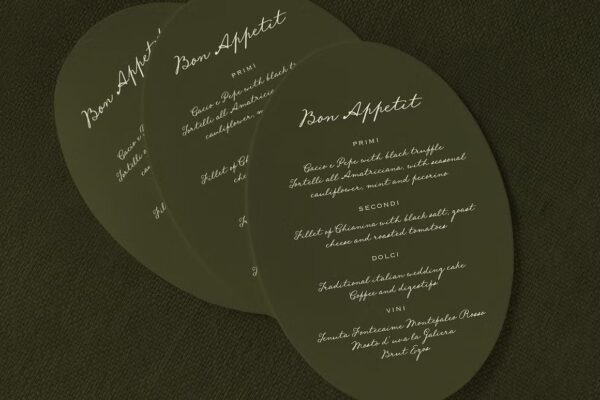 Bon Appetit
Bon Appetit
PRIMI
Cacio e Pepe with black t
Tortelli all Amatricia
cauliflower, m
Fillet of Gh
chee
Bon Appetit
PRIMI
Cacio e Pepe with black truffle
Tortelli all Amatriciana, with seasonal
cauliflower, mint and pecorino
SECONDI
Fillet of Ghianina with black salt, goast
cheese and roasted tomatoes
DOLCI
Traditional italian wedding cake
Coffee and digestifs
VINI
Tenuta Fontecaime Montefaleo Rosso
Mosto d'uva la Galiera
Brut